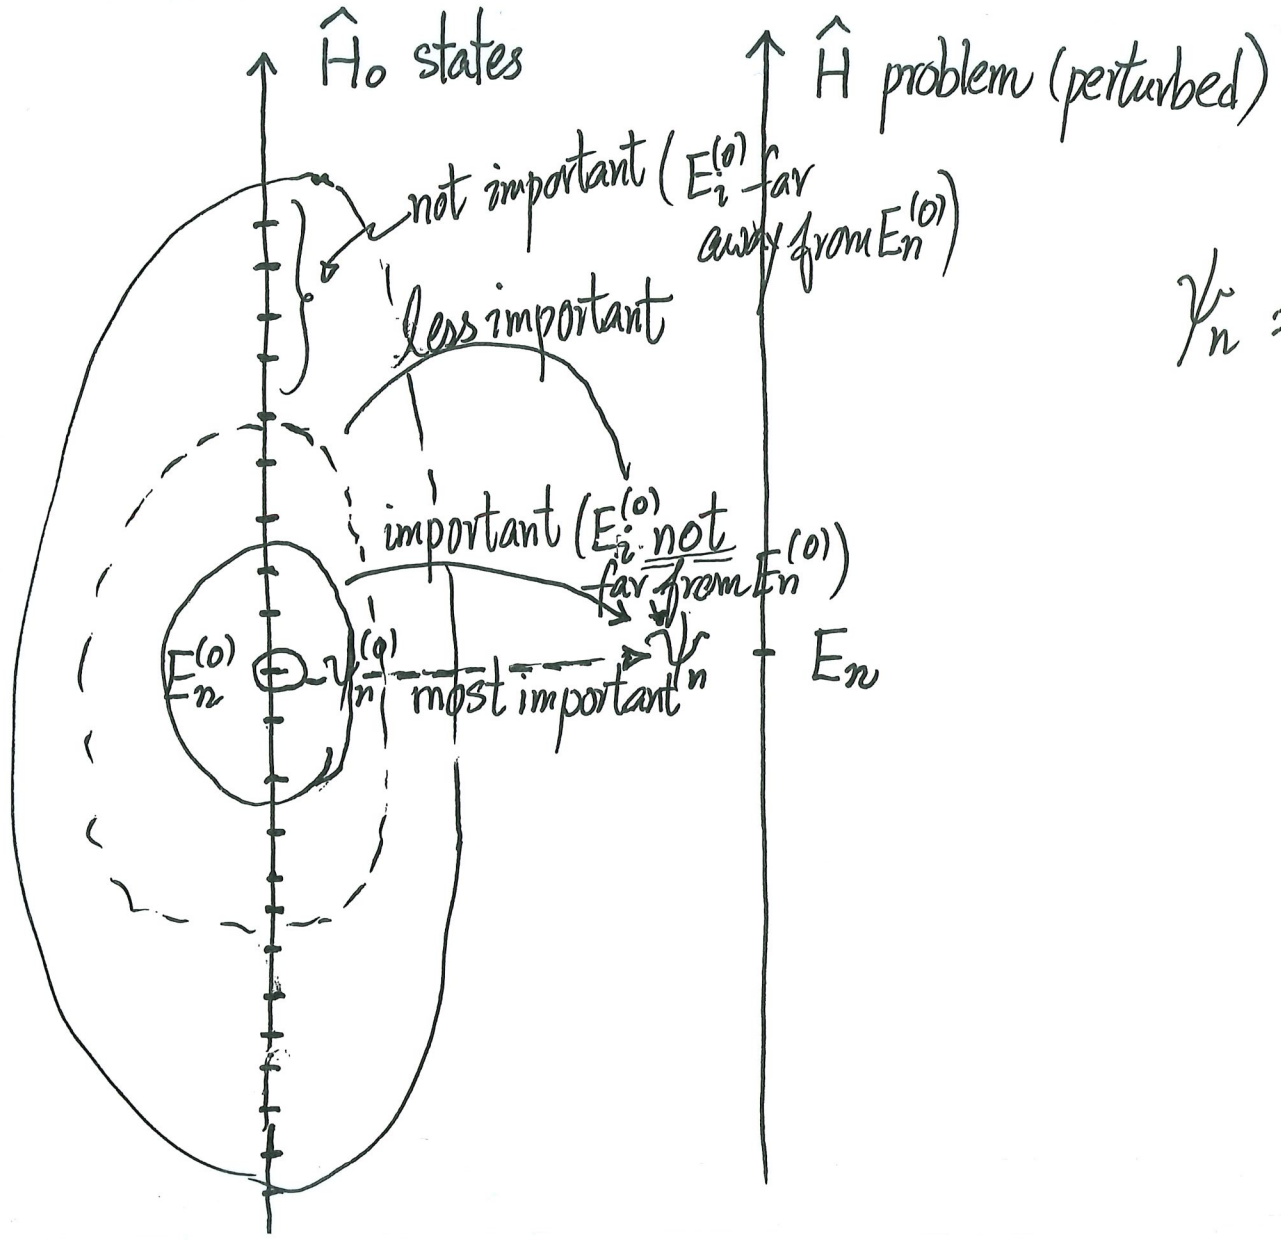 Ĥ₀ states
Ĥ problem (perturbed)
not important (E_i^(0) far
away from E_n^(0))
ψ_n =
less important
important (E_i^(0) not
far from E_n^(0))
E_n^(0) ψ_n^(0) ψ_n E_n
most important